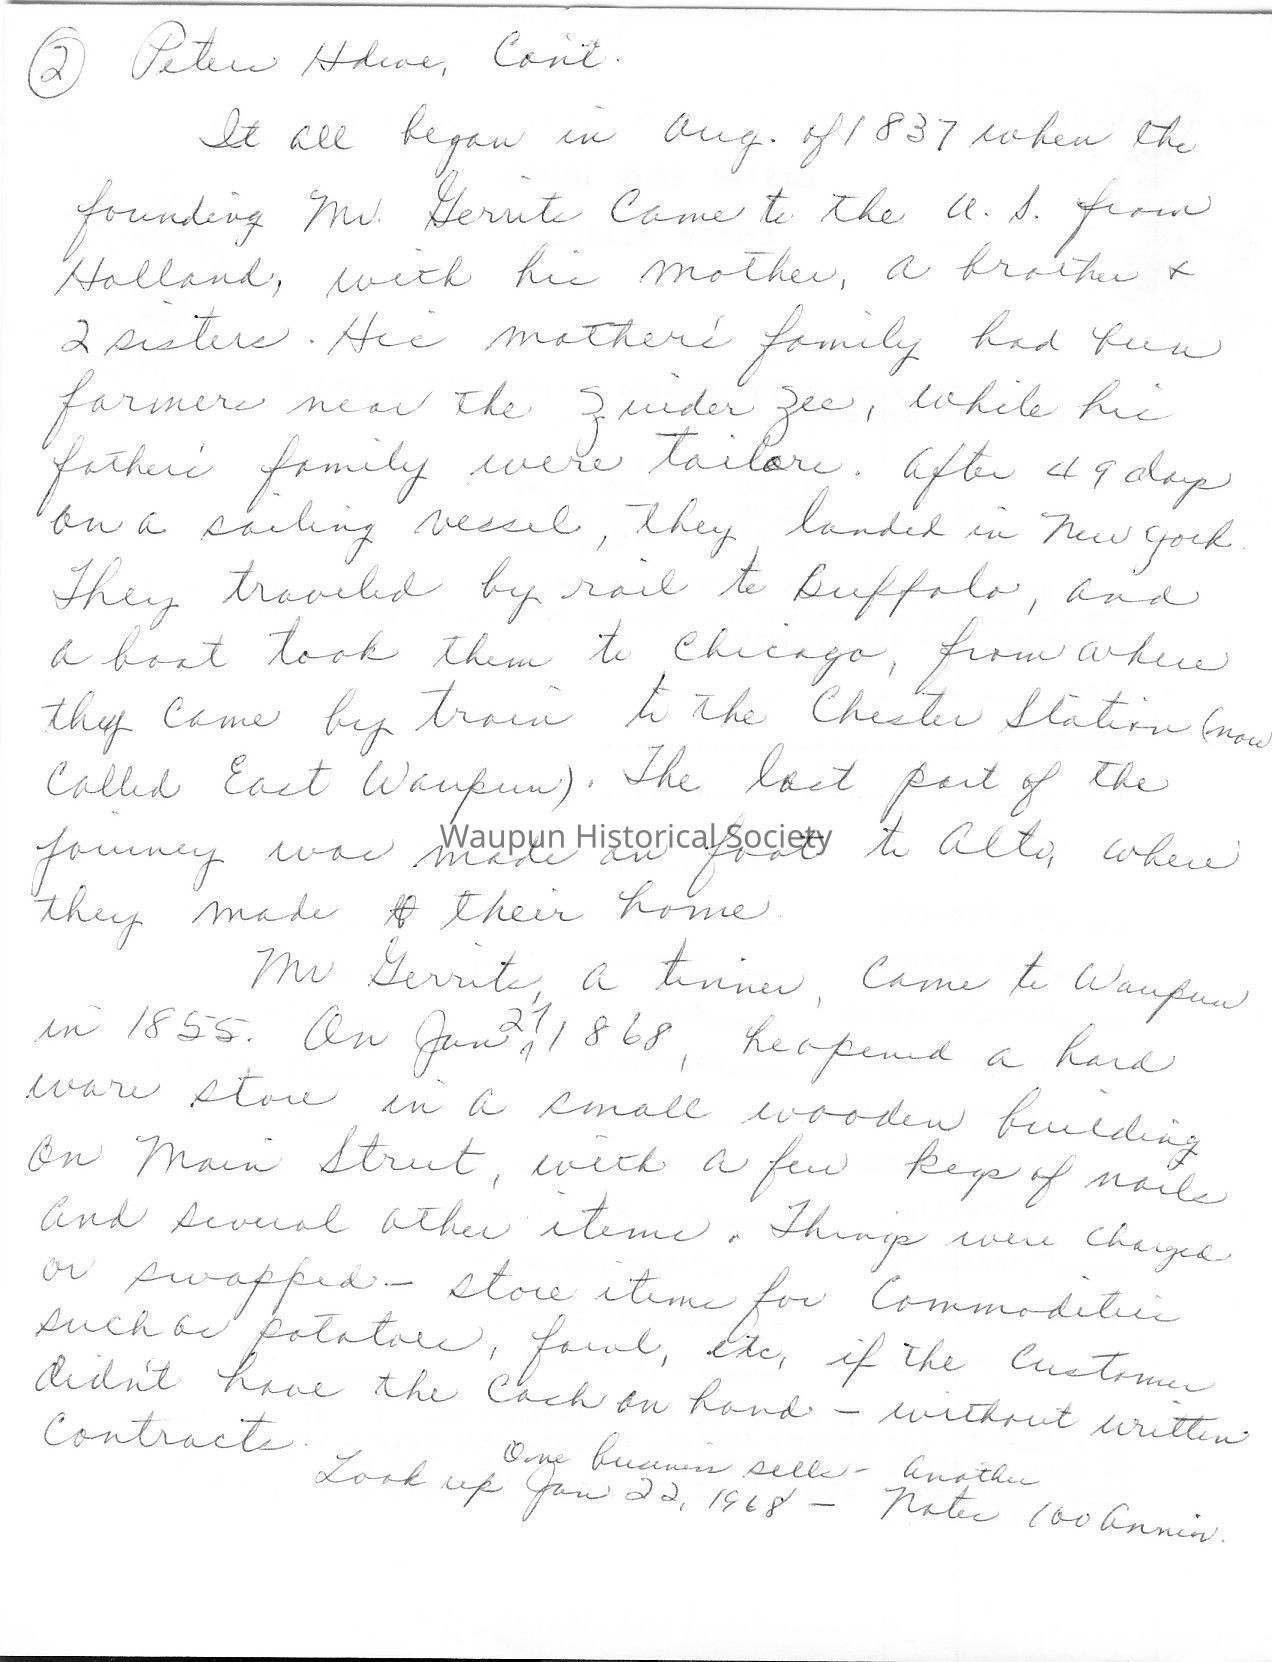 2 Peters Hdwe, Con't.
It all began in Aug. of 1837 when the
founding Mr. Gerrits came to the U. S. from
Holland, with his mother, a brother &
2 sisters. His mother's family had been
farmers near the Zuider Zee, while his
father's family were tailors. After 49 days
on a sailing vessel, they landed in New York.
They traveled by rail to Buffalo, and
a boat took them to Chicago, from where
they came by train to the Chester Station (now
called East Waupun). The last part of the
journey was made on foot to Alto, where
Waupun Historical Society
they made their home.
Mr Gerrits, a tinner, came to Waupun
in 1855. On Jan 27, 1868, he opened a hard
ware store in a small wooden building
on Main Street, with a few kegs of nails
and several other items. Things were charged
or swapped - store items for commodities
such as potatoes, fowl, etc, if the customer
didn't have the cash on hand - without written
contracts.
One business sells - another
Look up Jan 22, 1968 - Notes 100 Anniv.